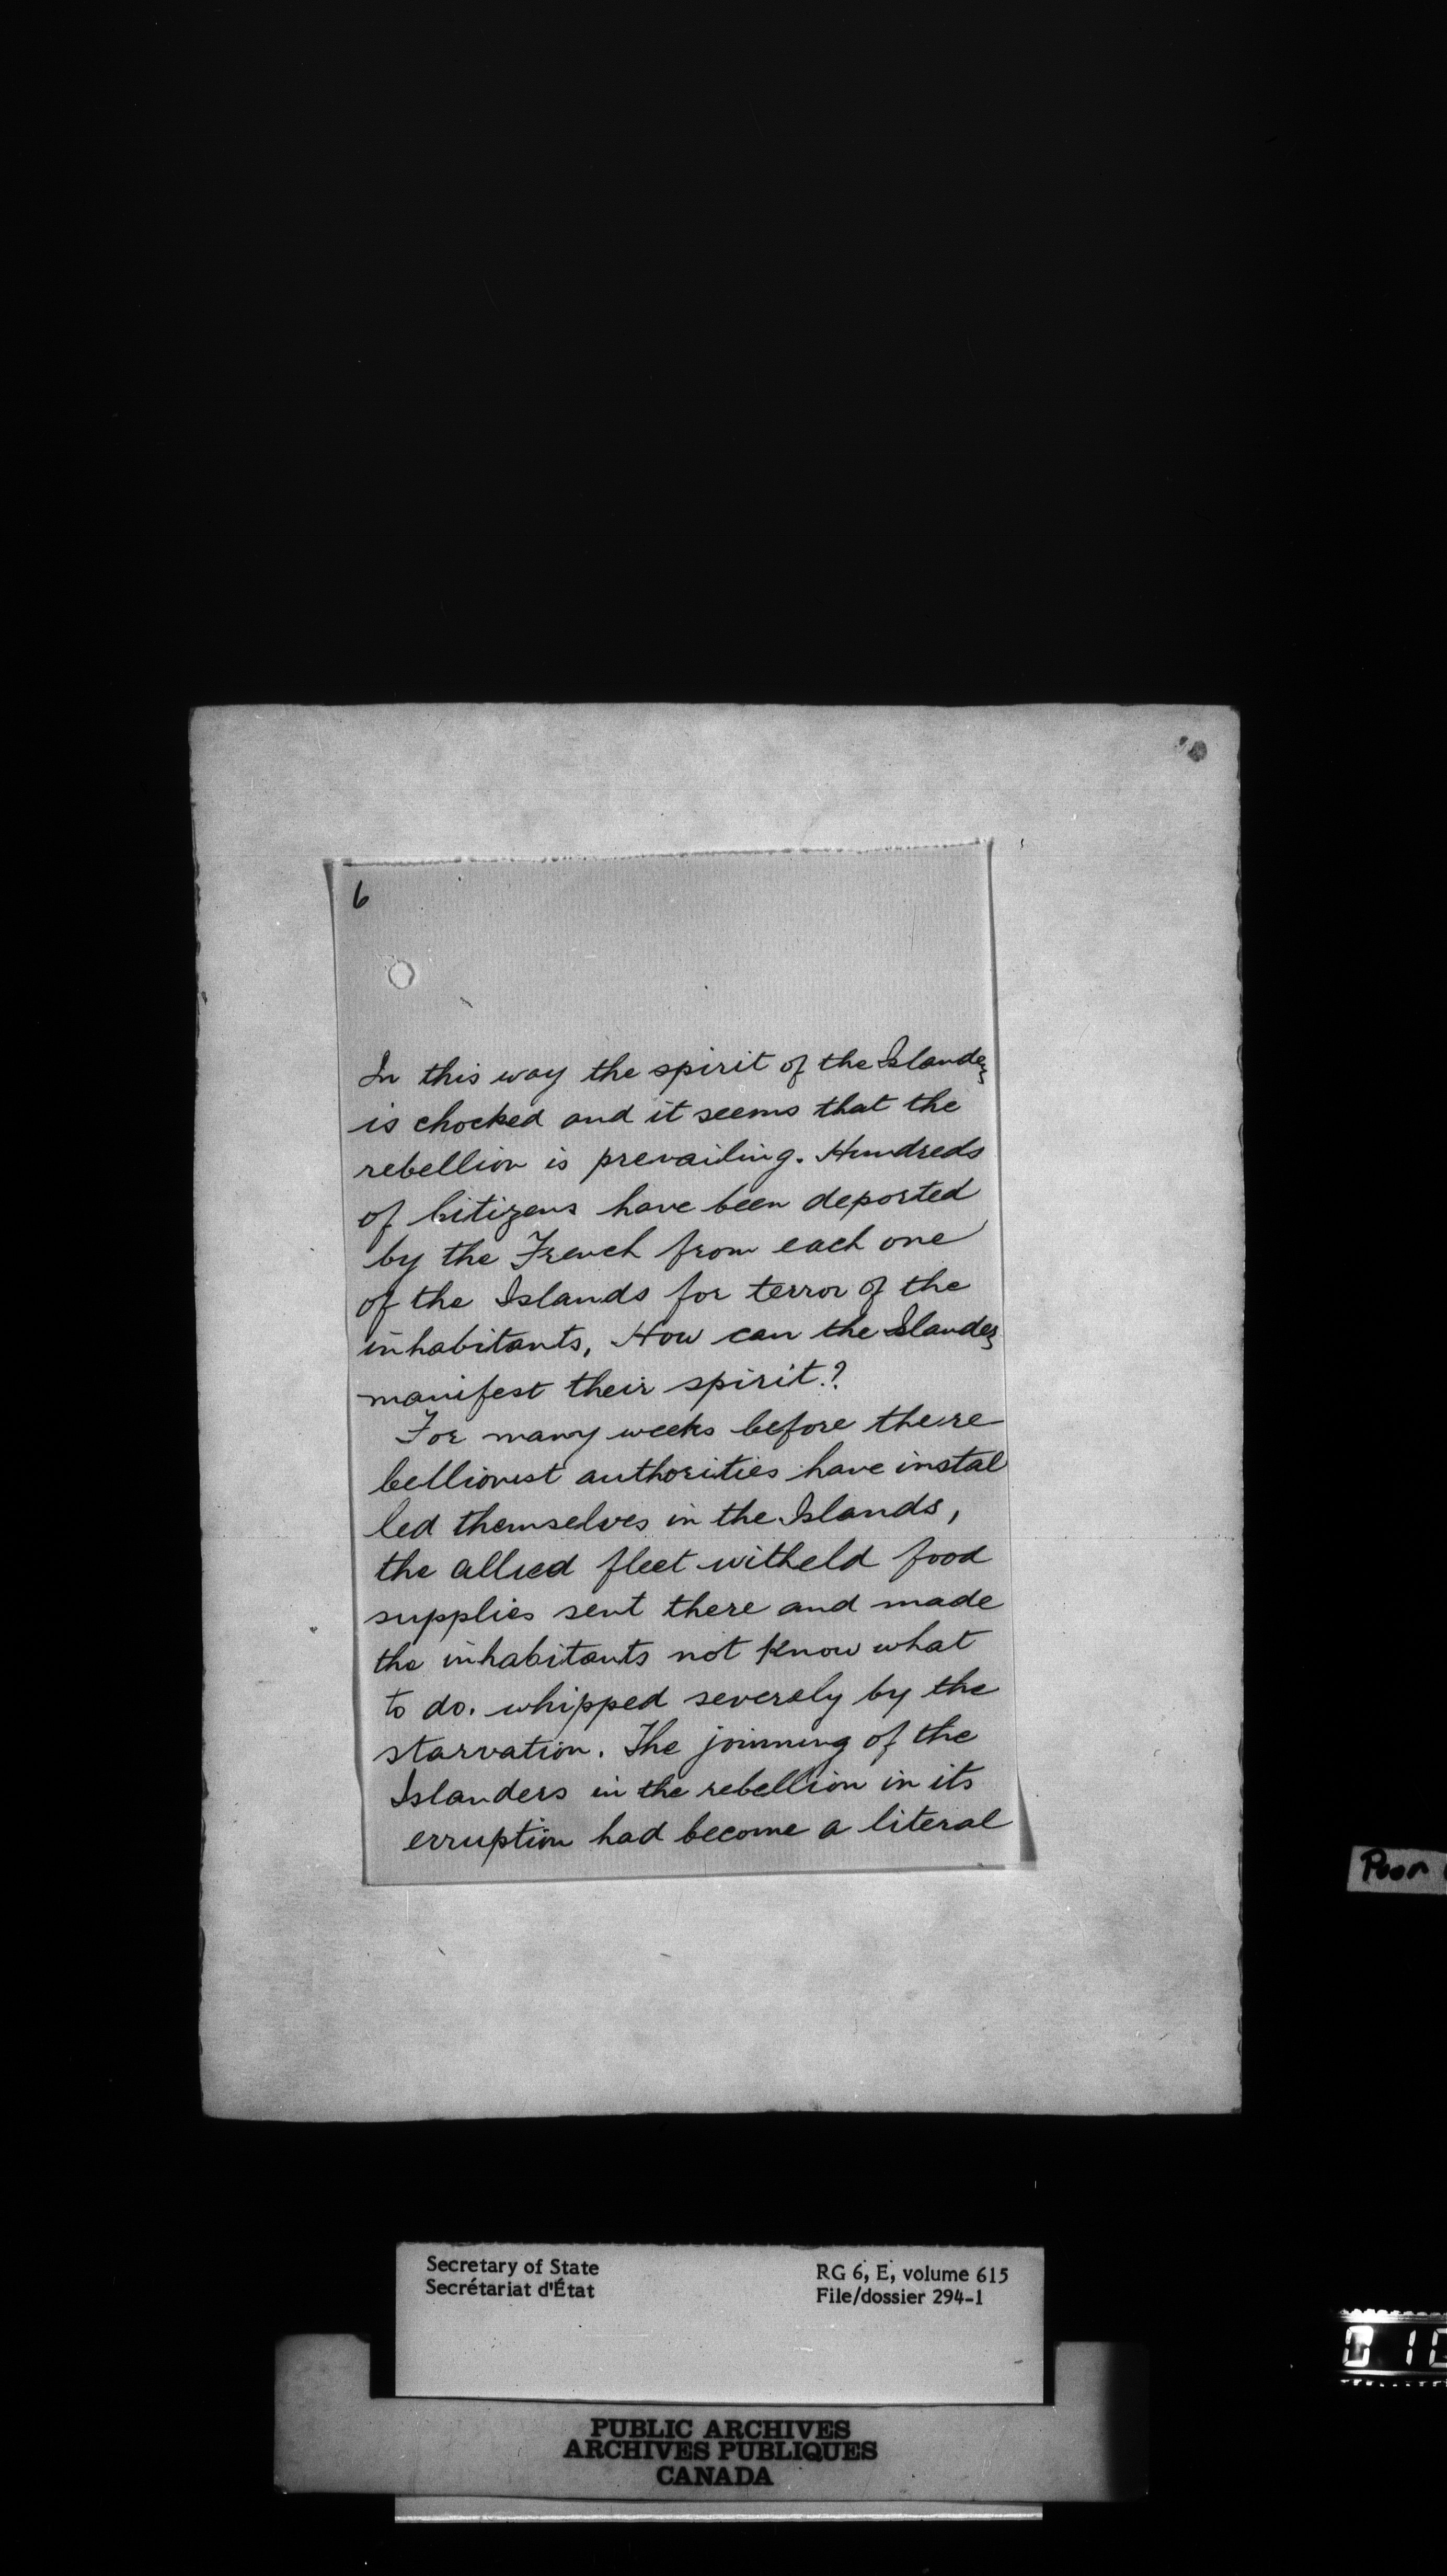 6
In this way the spirit of the Islanders
is chocked and it seems that the
rebellion is prevailing. Hundreds
of Citizens have been deported
by the French from each one
of the Islands for terror of the
inhabitants, How can the Islanders
manifest their spirit.?
For many weeks before the re
bellionist authorities have instal
led themselves in the Islands,
the allied fleet witheld food
supplies sent there and made
the inhabitants not know what
to do. whipped severely by the
starvation. The joinning of the
Islanders in the rebellion in its
erruption had become a literal
Poor
Secretary of State
Secrétariat d'État
RG 6, E, volume 615
File/dossier 294-1
PUBLIC ARCHIVES
ARCHIVES PUBLIQUES
CANADA